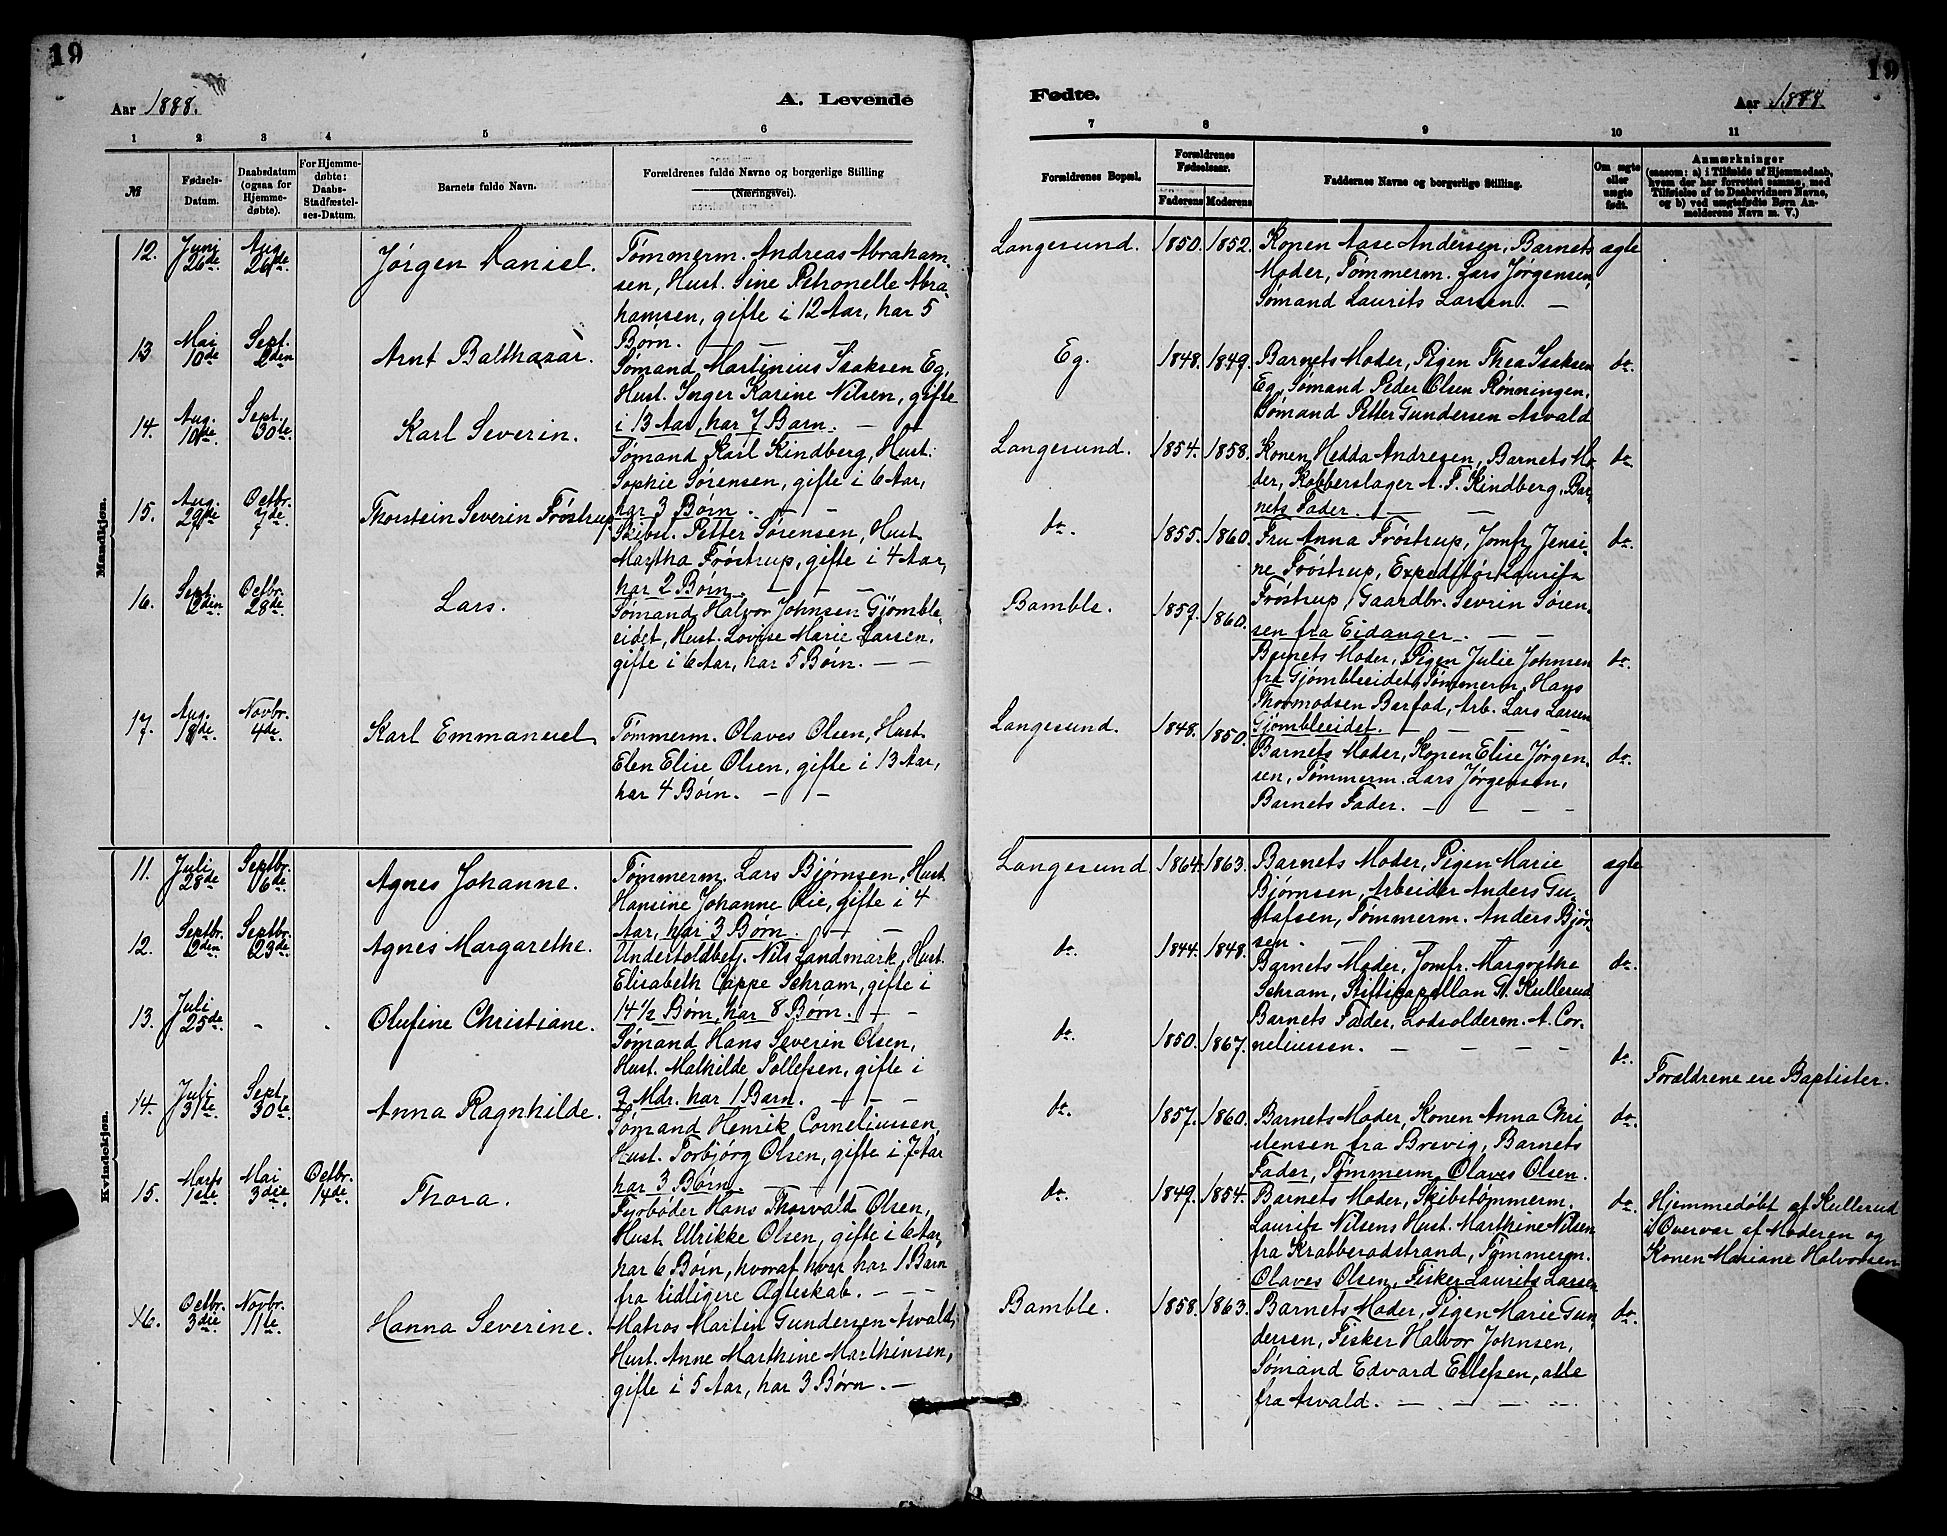 19
Aar 1888.
A. Levende
1 2 3 4 5 6
№
Fødsels-Datum.
Daabsdatum (ogsaa for Hjemme-døbte).
For Hjemme-døbte: Daabs-Stadfæstel-ses-Datum.
Barnets fulde Navn.
Forældrenes fulde Navne og borgerlige Stilling
(Næringsvei).
Mandkjøn.
12. Juni 26de Aug. 26de Jørgen Daniel.
Tømmerm. Andreas Abraham-
sen, Hust. Sine Petronelle Abra-
hamsen, gifte i 12 Aar, har 5
Børn. — —
13 Mai 10de Sept. 2den Arnt Balthazar.
Sømand Martinius Isaksen Eg,
Hust. Inger Karine Nilsen, gifte
i 13 Aar, har 7 Barn. — —
14. Aug. 10de Sept. 30te Karl Severin.
Sømand Karl Kindberg, Hust.
Sophie Sørensen, gifte i 6 Aar,
har 3 Børn — — —
15. Aug. 29de Octbr. 7de Thorstein Severin Frøstrup
Skibst. Petter Sørensen, Hust.
Martha Frøstrup, gifte i 4 Aar,
har 2 Børn. — — —
16. Sept. 2den Octbr. 28de Lars.
Sømand Halvor Johnsen Gjømble-
eidet, Hust. Lovise Marie Larsen,
gifte i 6 Aar, har 5 Børn. — —
17. Aug. 18de Novbr. 4de Karl Emmanuel
Tømmerm. Olaves Olsen, Hust.
Elen Elise Olsen, gifte i 13 Aar,
har 4 Børn. — —
Kvindekjøn.
11. Juli 28de Septbr. 16de Agnes Johanne.
Tømmerm. Lars Bjørnsen, Hust.
Hansine Johanne Lie, gifte i 4
Aar, har 3 Børn. — —
12. Septbr. 2den Septbr. 23de Agnes Margarethe.
Undertoldbetj. Nils Landmark, Hust.
Elisabeth Cappe Schram, gifte i
14 1/2 Børn, har 8 Børn. — —
13. Juli 25de - - Olufine Christiane.
Sømand Hans Severin Olsen,
Hust. Mathilde Tollefsen, gifte i
9 Mdr. har 1 Barn. — — —
14. Juli 31te Sept. 30te Anna Ragnhilde.
Sømand Henrik Corneliussen,
Hust. Torbjørg Olsen, gifte i 7 Aar
har 3 Børn. — — —
15. Marts 1ste Mai 3die Octbr. 14de Thora.
Fyrbøder Hans Thorvald Olsen,
Hust. Ulrikke Olsen, gifte i 6 Aar,
har 6 Børn, hvoraf hver har 1 Barn
fra tidligere Ægteskab. — — —
16. Octbr. 3die Novbr. 11te Hanna Severine.
Matros Martin Gundersen Asvald,
Hust. Anne Marthine Marthinsen,
gifte i 5 Aar, har 3 Børn. —
Fødte.
Aar 1888.
19
7 8 9 10 11
Forældrenes Bopæl.
Forældrenes Fødselsaar.
Faderens Moderens
Faddernes Navne og borgerlige Stilling.
Om ægte eller uægte født.
Anmærkninger
(saasom: a) i Tilfælde af Hjemmedaab,
hvem der har forrettet samme, med
Tilføielse af to Daabsvidners Navne,
og b) ved uægtefødte Børn An-
melderens Navn m. V.)
Langesund. 1850. 1852. Konen Aase Andersen, Barnets ægte
Moder, Tømmerm. Lars Jørgensen,
Sømand Laurits Larsen. —
Eg. 1848. 1849. Barnets Moder, Pigen Thea Isaksen do.
Eg, Sømand Peder Olsen Rønningen,
Sømand Petter Gundersen Asvald
Langesund. 1854. 1858. Konen Hedda Andresen, Barnets Mo- do.
der, Kobberslager A. F. Kindberg, Bar-
nets Fader. — — —
do. 1855. 1860. Fru Anna Frøstrup, Jomfr. Jensi- do.
ne Frøstrup, Expeditør Laurits
Frøstrup, Gaardbr. Sevrin Søren-
sen fra Eidanger. — —
Bamble. 1859. 1860. Barnets Moder, Pigen Julie Johnsen do.
fra Gjømbleeidet, Tømmerm. Hans
Thormodsen Barfod, Arb. Lars Larsen
Gjømbleeidet. — — — —
Langesund. 1848. 1850. Barnets Moder, Konen Elise Jørgen- do.
sen, Tømmerm. Lars Jørgensen,
Barnets Fader. — — — —
Langesund 1864. 1863. Barnets Moder, Pigen Marie ægte
Bjørnsen, Arbeider Anders Gu-
stafsen, Tømmerm. Anders Bjør-
sen. — — — —
do. 1844. 1848. Barnets Moder, Jomfr. Margrethe do.
Schram, Stiftscapellan G. Kullerud
Barnets Fader, Lodsolderm. A. Cor-
neliussen. — — — —
do. 1850. 1867. do. Forældrene ere Baptister.
do. 1857. 1860. Barnets Moder, Konen Anna Chri- do.
stensen fra Brevig, Barnets
Fader, Tømmerm. Olaves Olsen.
do. 1849. 1854. Barnets Moder, Skibstømmerm. do. Hjemmedøbt af Kullerud
Laurits Nilsens Hust. Marthine Nilsen i Overvær af Moderen og
fra Krabberødstrand, Tømmerm. Konen Mariane Halvorsen
Olaves Olsen, Fisker Laurits Larsen
Bamble. 1858. 1863. Barnets Moder, Pigen Marie Gun- do.
dersen, Fisker Halvor Johnsen,
Sømand Edvard Ellefsen, alle
fra Asvald. — — — —